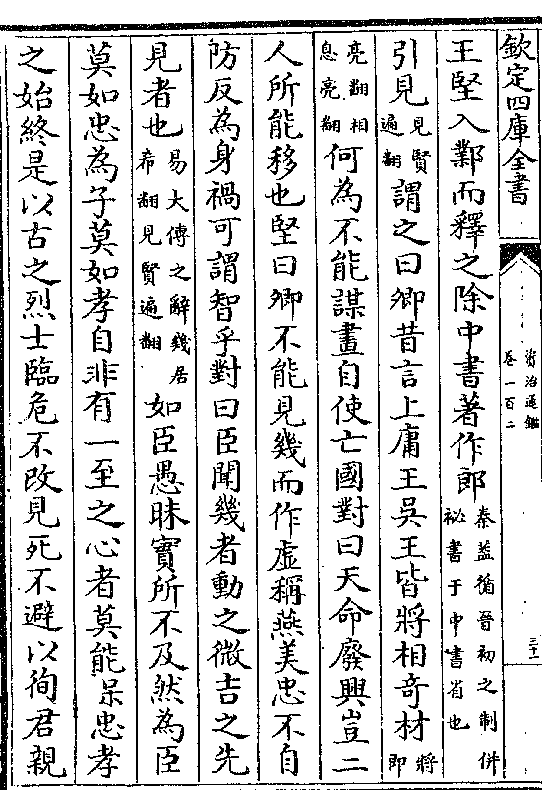 欽定四庫全書
資治通鑑
卷一百二
王堅入鄴而釋之除中書著作郎秦蓋循晉初之制併祕書于中書省也
引見見賢遍翻謂之曰卿昔言上庸王吳王皆將相奇材將即
亮翻相息亮翻何為不能謀畫自使亡國對曰天命廢興豈二
人所能移也堅曰卿不能見幾而作虛稱燕美忠不自
防反為身禍可謂智乎對曰臣聞幾者動之微吉之先
見者也易大傳之辭幾居希翻見賢遍翻如臣愚昧實所不及然為臣
莫如忠為子莫如孝自非有一至之心者莫能保忠孝
之始終是以古之烈士臨危不改見死不避以徇君親